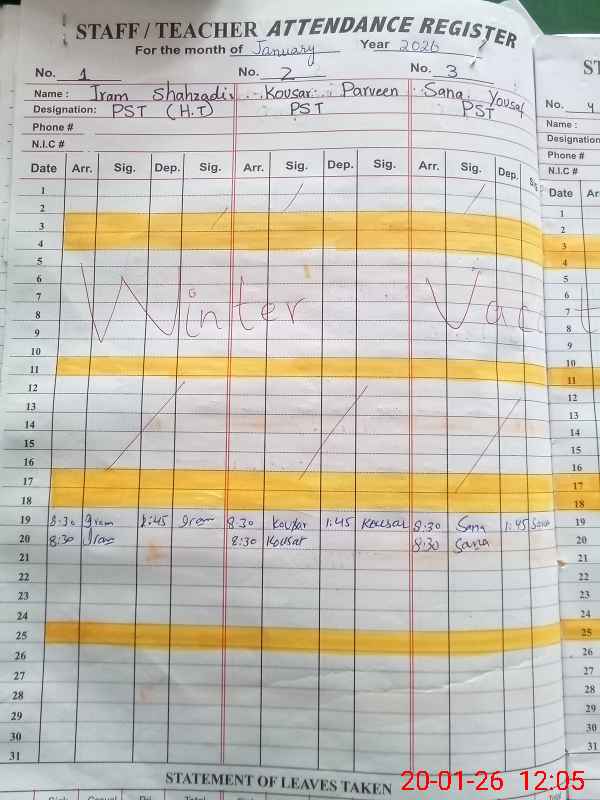 STAFF / TEACHER ATTENDANCE REGISTER
For the month of January Year 2026
No. 1 No. 2 No. 3
Name : Iram Shahzadi Kousar Parveen Sana Yousaf
Designation: PST (H.T) PST PST
Phone #
N.I.C #
Date Arr. Sig. Dep. Sig. Arr. Sig. Dep. Sig. Arr. Sig. Dep.
1
2
3
4
5
6
7
8
Winter Vac
9
10
11
12
13
14
15
16
17
18
19 8:30 Iram 1:45 Iram 8:30 Kousar 1:45 Kousar 8:30 Sana 1:45 Sana
20 8:30 Iram 8:30 Kousar 8:30 Sana
21
22
23
24
25
26
27
28
29
30
31
STATEMENT OF LEAVES TAKEN
No. 4
Name :
Designation
Phone #
N.I.C #
Date
1
2
3
4
5
6
7
8
9
10
11
12
13
14
15
16
17
18
19
20
21
22
23
24
25
26
27
28
29
30
31
20-01-26 12:05